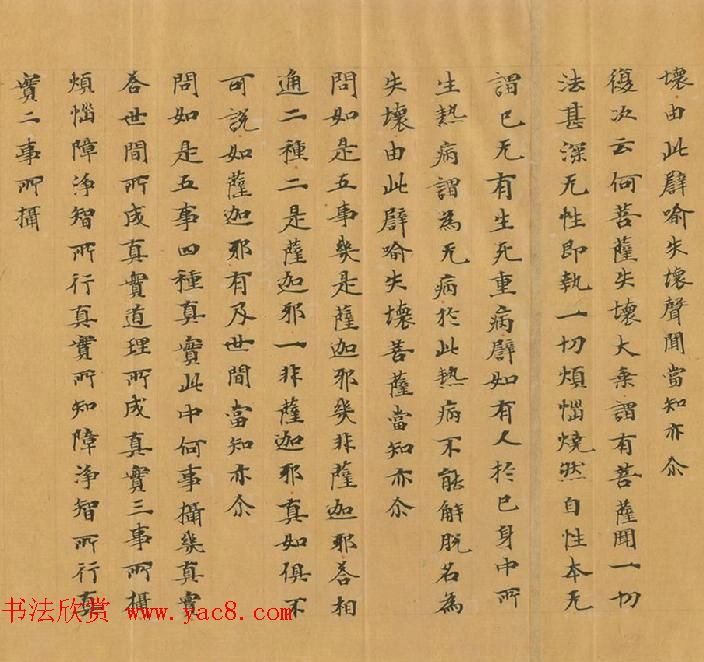 壞由此譬喻失壞聲聞當知亦尒
復次云何菩薩失壞大乗謂有菩薩聞一切
法甚深无性即執一切煩惱燒然自性本无
謂已无有生死重病譬如有人於已身中所
生熱病謂為无病於此熱病不能解脫名為
失壞由此譬喻失壞菩薩當知亦尒
問如是五事幾是薩迦邪幾非薩迦邪荅相
通二種二是薩迦邪一非薩迦邪真如俱不
可說如薩迦邪有及世間當知亦尒
問如是五事四種真實此中何事攝幾真實
荅世間所成真實道理所成真實三事所攝
煩惱障淨智所行真實所知障淨智所行真
實二事所攝
书法欣赏 www.yac8.com